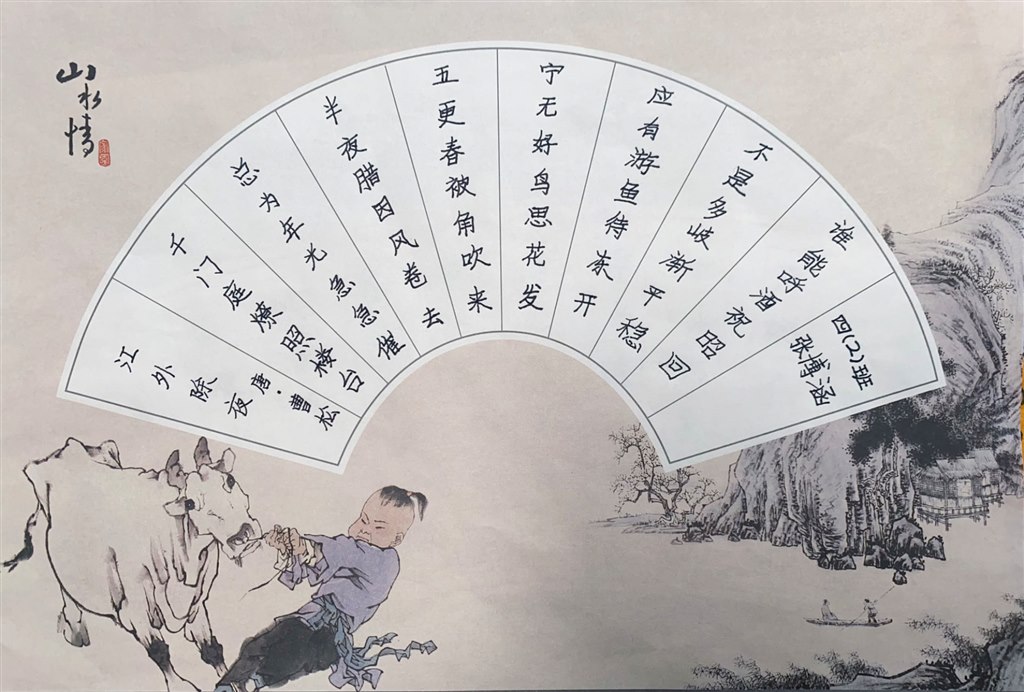 山水情
江外除夜
唐·曹松
千门庭燎照楼台
总为年光急急催
半夜腊因风卷去
五更春被角吹来
宁无好鸟思花发
应有游鱼待冻开
不是多岐渐平稳
谁能呼酒祝昭回
四(2)班
张博涵